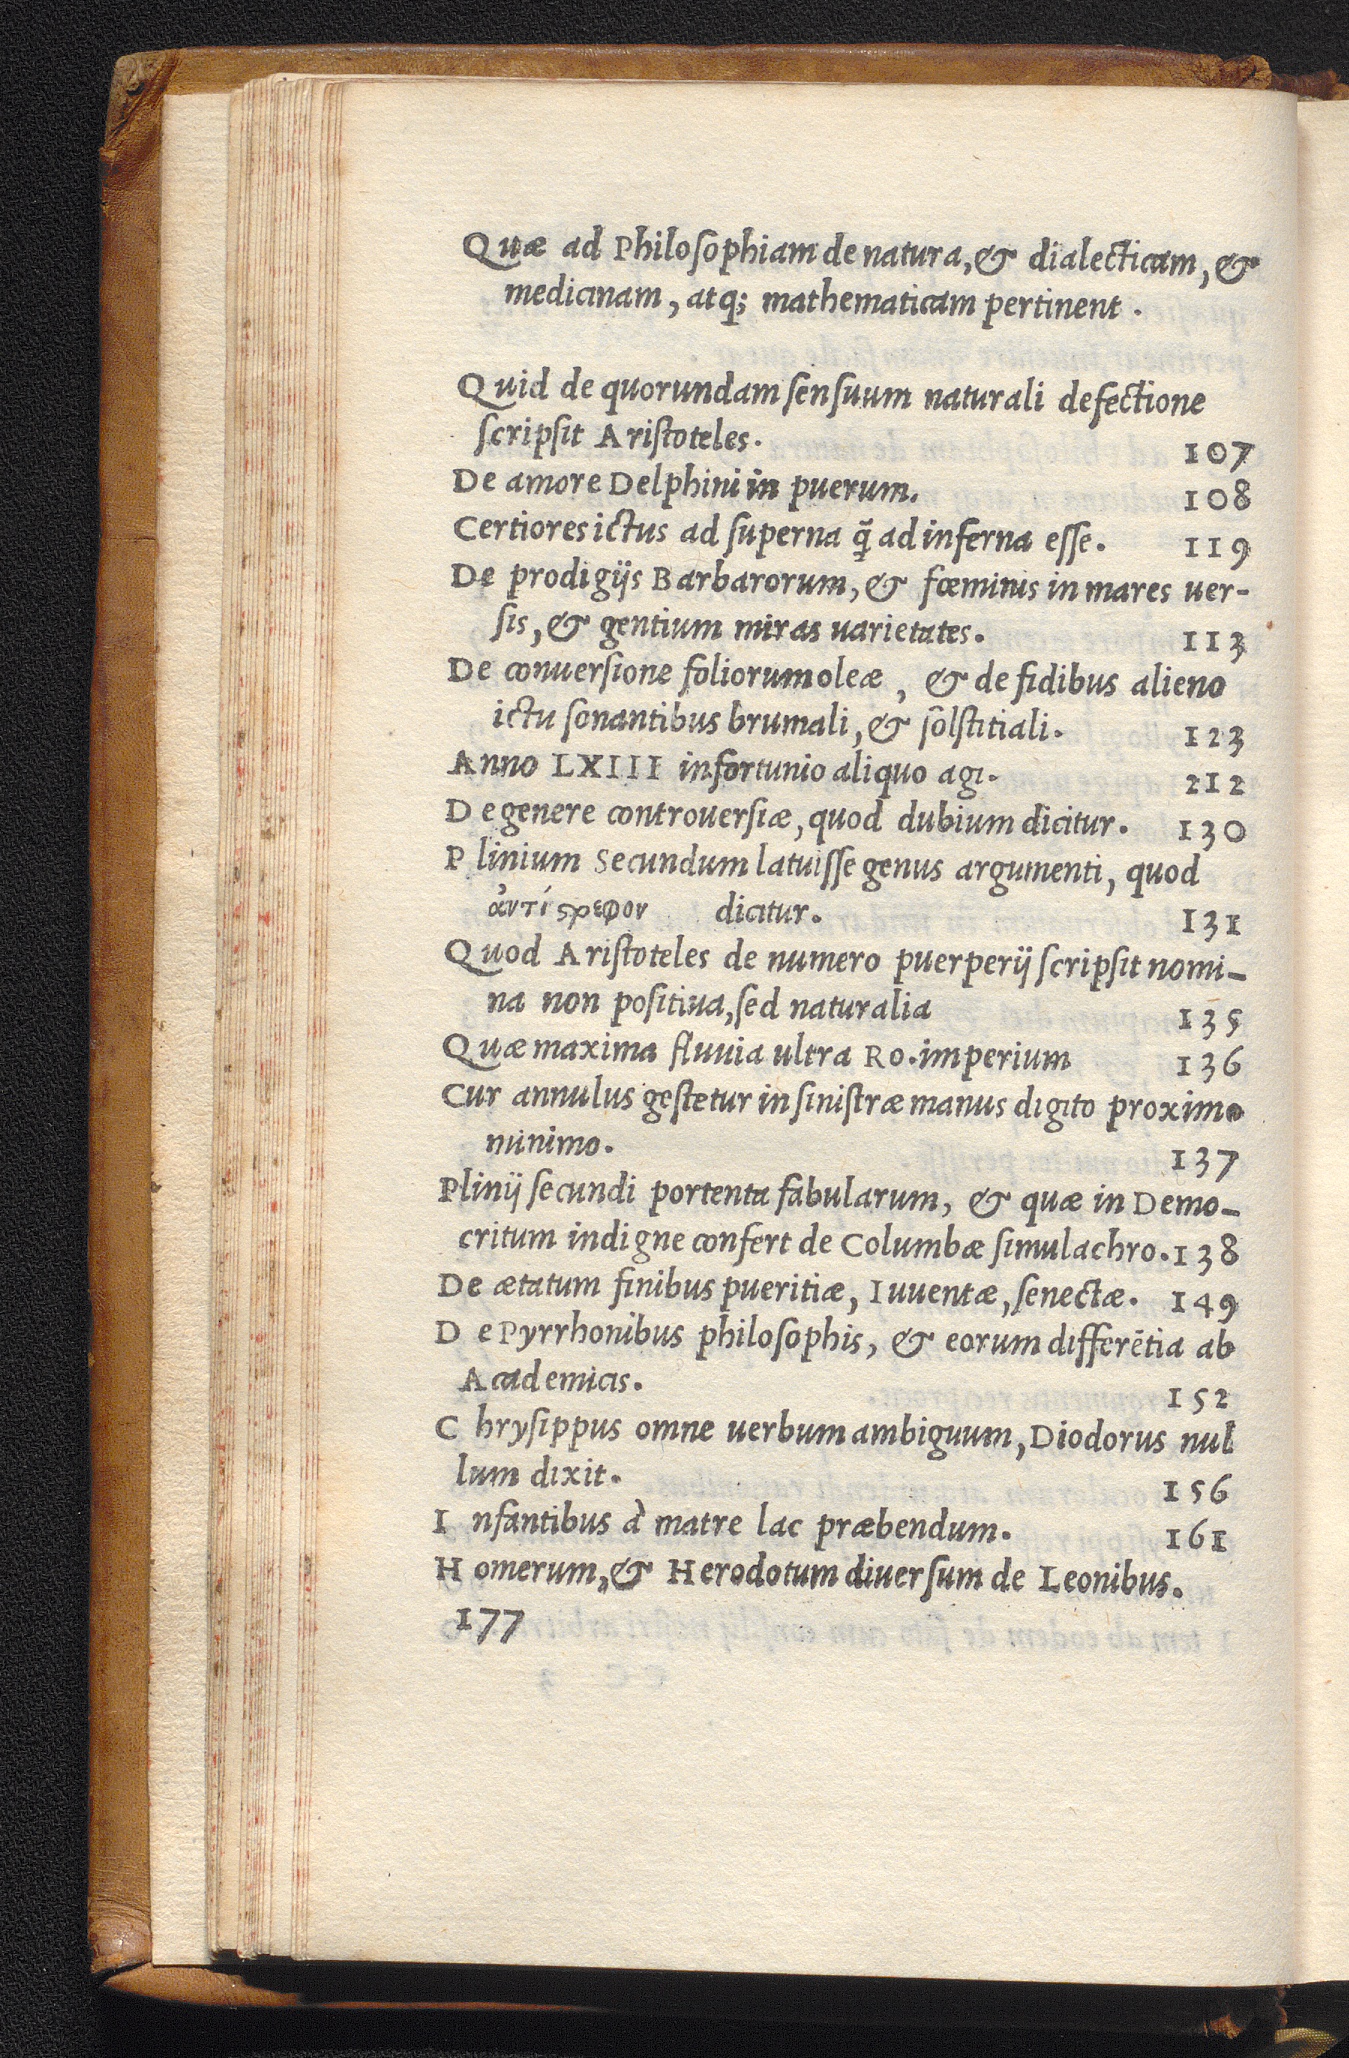 Quæ ad Philosophiam de natura, & dialecticam, &
medicinam, atq; mathematicam pertinent.
Quid de quorundam sensuum naturali defectione
scripsit Aristoteles. 107
De amore Delphini in puerum. 108
Certiores ictus ad superna q̃ ad inferna esse. 119
De prodigijs Barbarorum, & fœminis in mares uer-
sis, & gentium miras uarietates. 113
De conuersione foliorum oleæ, & de fidibus alieno
ictu sonantibus brumali, & sôlstitiali. 123
Anno LXIII infortunio aliquo agi. 212
De genere controuersiæ, quod dubium dicitur. 130
Plinium Secundum latuisse genus argumenti, quod
ἀντίϛρεφον dicitur. 131
Quod Aristoteles de numero puerperij scripsit nomi-
na non positiua, sed naturalia 135
Quæ maxima fluuia ultra Ro. imperium 136
Cur annulus gestetur in sinistræ manus digito proximo
minimo. 137
Plinij secundi portenta fabularum, & quæ in Demo-
critum indigne confert de Columbæ simulachro. 138
De ætatum finibus pueritiæ, Iuuentæ, senectæ. 149
De Pyrrhonibus philosophis, & eorum differētia ab
Academicis. 152
Chrysippus omne uerbum ambiguum, Diodorus nul
lum dixit. 156
Infantibus à matre lac præbendum. 161
Homerum, & Herodotum diuersum de Leonibus.
177